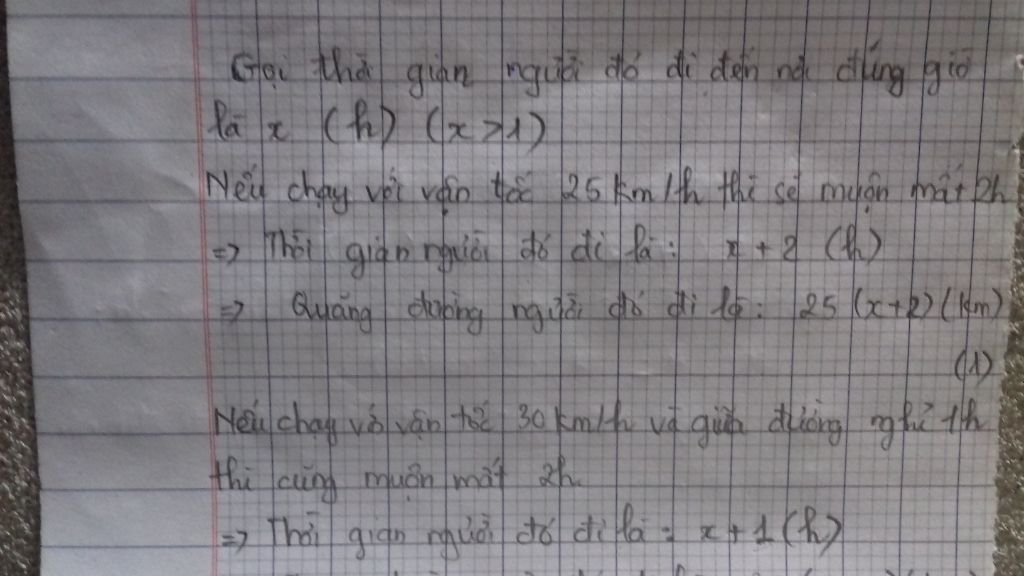 Gọi thời gian người đó đi đến nơi đúng giờ
là x (h) (x>1)
Nếu chạy với vận tốc 25 km/h thì sẽ muộn mất 2h
=> Thời gian người đó đi là: x + 2 (h)
=> Quãng đường người đó đi là: 25 (x+2) (km)
(1)
Nếu chạy với vận tốc 30 km/h và giữa đường nghỉ 1h
thì cũng muộn mất 2h
=> Thời gian người đó đi là: x + 1 (h)